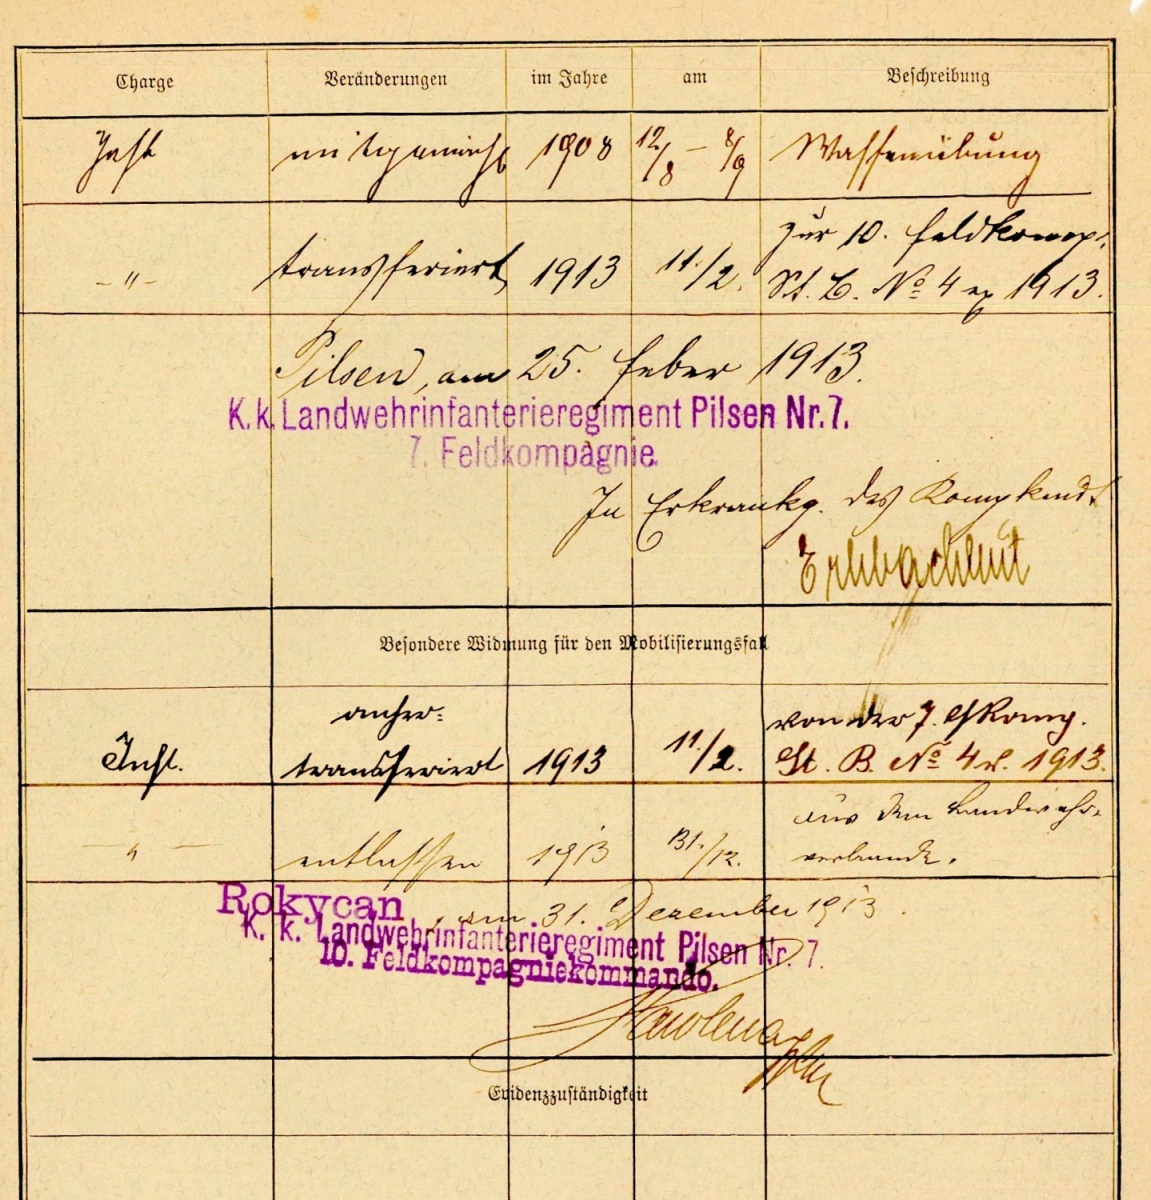 Charge Veränderungen im Jahre am Beschreibung
Inft mitgemacht 1908 12/8 – 8/9 Waffenübung
zur 10. Feldkomp.
– " – transferiert 1913 11./2. St. B. No 4 ex 1913.
Pilsen, am 25. Feber 1913.
K. k. Landwehrinfanterieregiment Pilsen Nr. 7.
7. Feldkompagnie.
In Erkrankg. des Kompkmdt
Besondere Widmung für den Mobilisierungsfall
anher= von der 7. Fkomp.
Inft. transferiert 1913 11./2. St. B. No 4 v. 1913.
aus dem Landwehr-
— " — entlassen 1913 31./12. verbande.
Rokycan, am 31. Dezember 1913.
K. k. Landwehrinfanterieregiment Pilsen Nr. 7.
10. Feldkompagniekommando.
Evidenzzuständigkeit